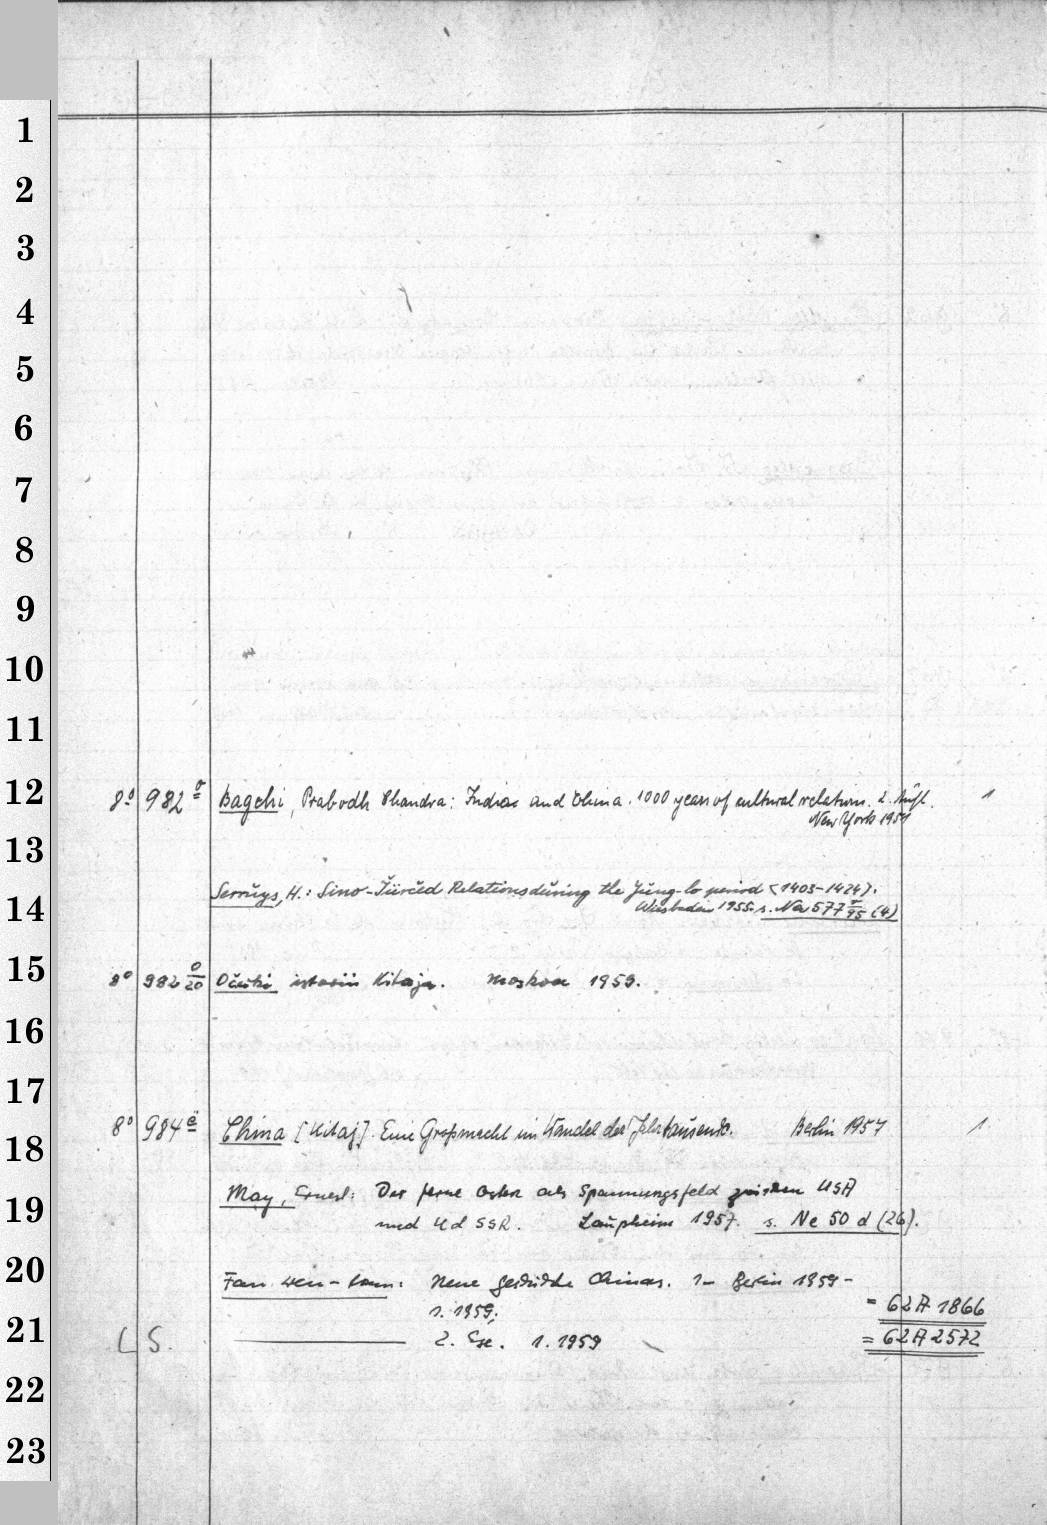 1
2
3
4
5
6
7
8
9
10
11
12
8° 982 ō Bagchi, Prabodh Chandra: India and China. 1000 years of cultural relations. 2. Aufl. 1
New York 1951
13
Serruys, H.: Sino-Jürčed Relations during the Yung-lo period (1403-1424).
14
Wiesbaden 1955. s. Na 577 (4)
15
8° 982 o/20 Očerki istorii Kitaja. Moskva 1959.
16
17
8° 984 Ch​ina [Kitaj]. Eine Großmacht im Wandel der Jahrtausende. Berlin 1957 1
18
May, Ernest: Der ferne Osten als Spannungsfeld zwischen USA
19
und UdSSR. Laupheim 1957. s. Ne 50 d (26).
20
Fan Wen-lan: Neue Geschichte Chinas. 1- Berlin 1959-
1. 1959. = 62 A 1866
21
LS. 2. Ex. 1. 1959 = 62 A 2572
22
23